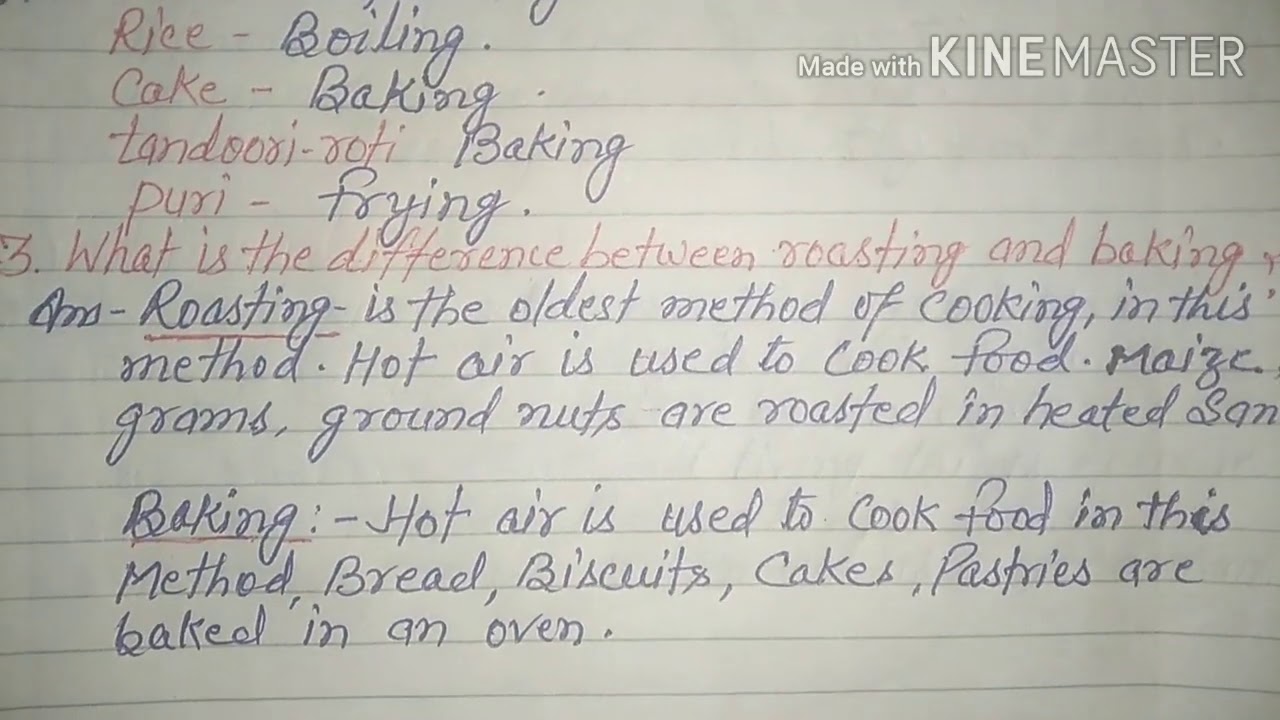 Rice - Boiling.
Made with KINEMASTER
Cake - Baking.
tandoori-roti Baking
Puri - frying.
3. What is the difference between roasting and baking
Ans - Roasting - is the oldest method of cooking, in this
method. Hot air is used to cook food. Maize,
grams, ground nuts are roasted in heated San
Baking :- Hot air is used to cook food in this
Method, Bread, Biscuits, Cakes, Pastries are
baked in an oven.